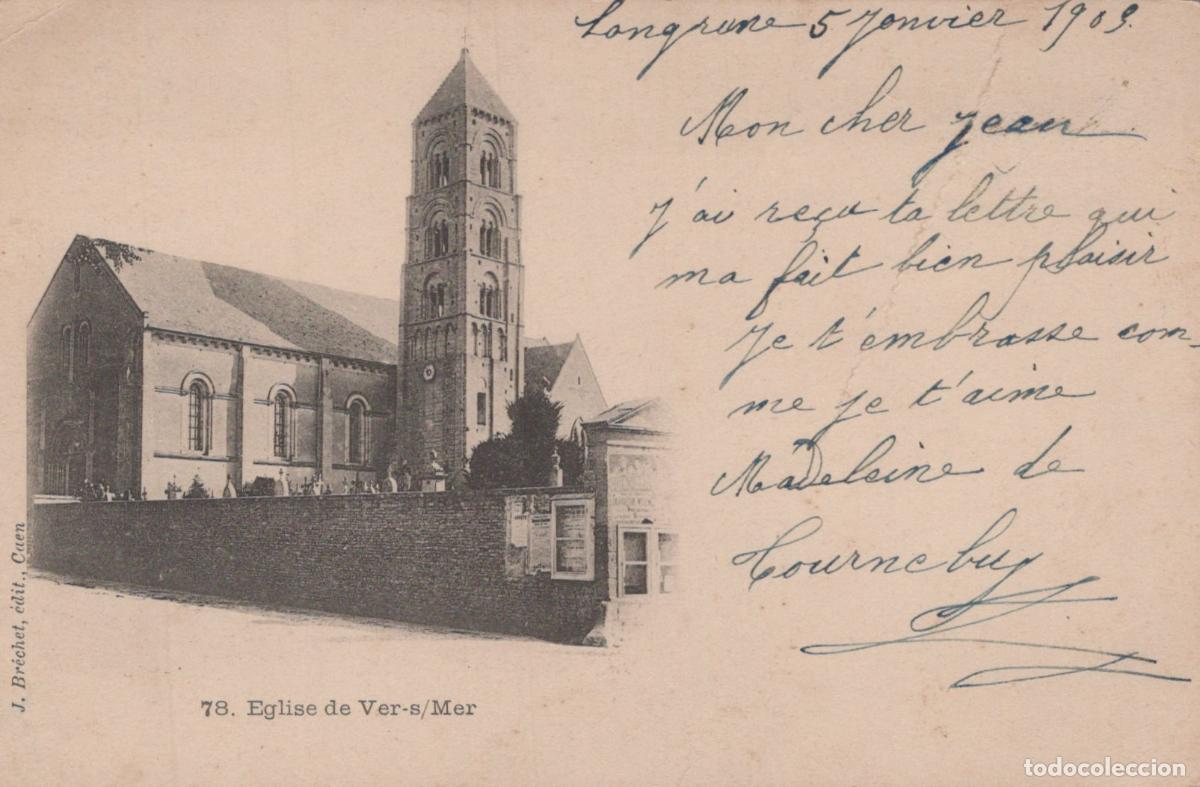 Longrune 5 Janvier 1903.
Mon cher Jean
j'ai reçu ta lettre qui
ma fait bien plaisir
Je t'embrasse com-
me je t'aime
Madeleine de
Tournebuy
J. Bréchet, édit., Caen
78. Eglise de Ver-s/Mer
todocoleccion